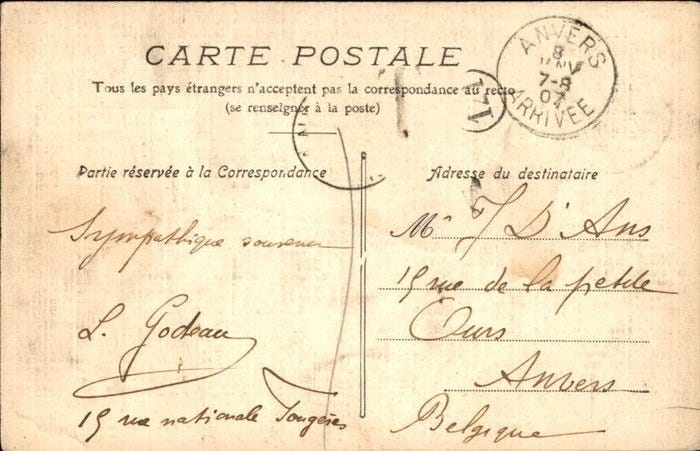 CARTE POSTALE
Tous les pays étrangers n'acceptent pas la correspondance au recto
(se renseigner à la poste)
ANVERS
8
JANV
7-8
07
ARRIVÉE
171
Partie réservée à la Correspondance
Sympathique souvenir
L. Godeau
15 rue nationale Fougères
Adresse du destinataire
Mr J D'Ans
15 rue de la petite
Ours
Anvers
Belgique